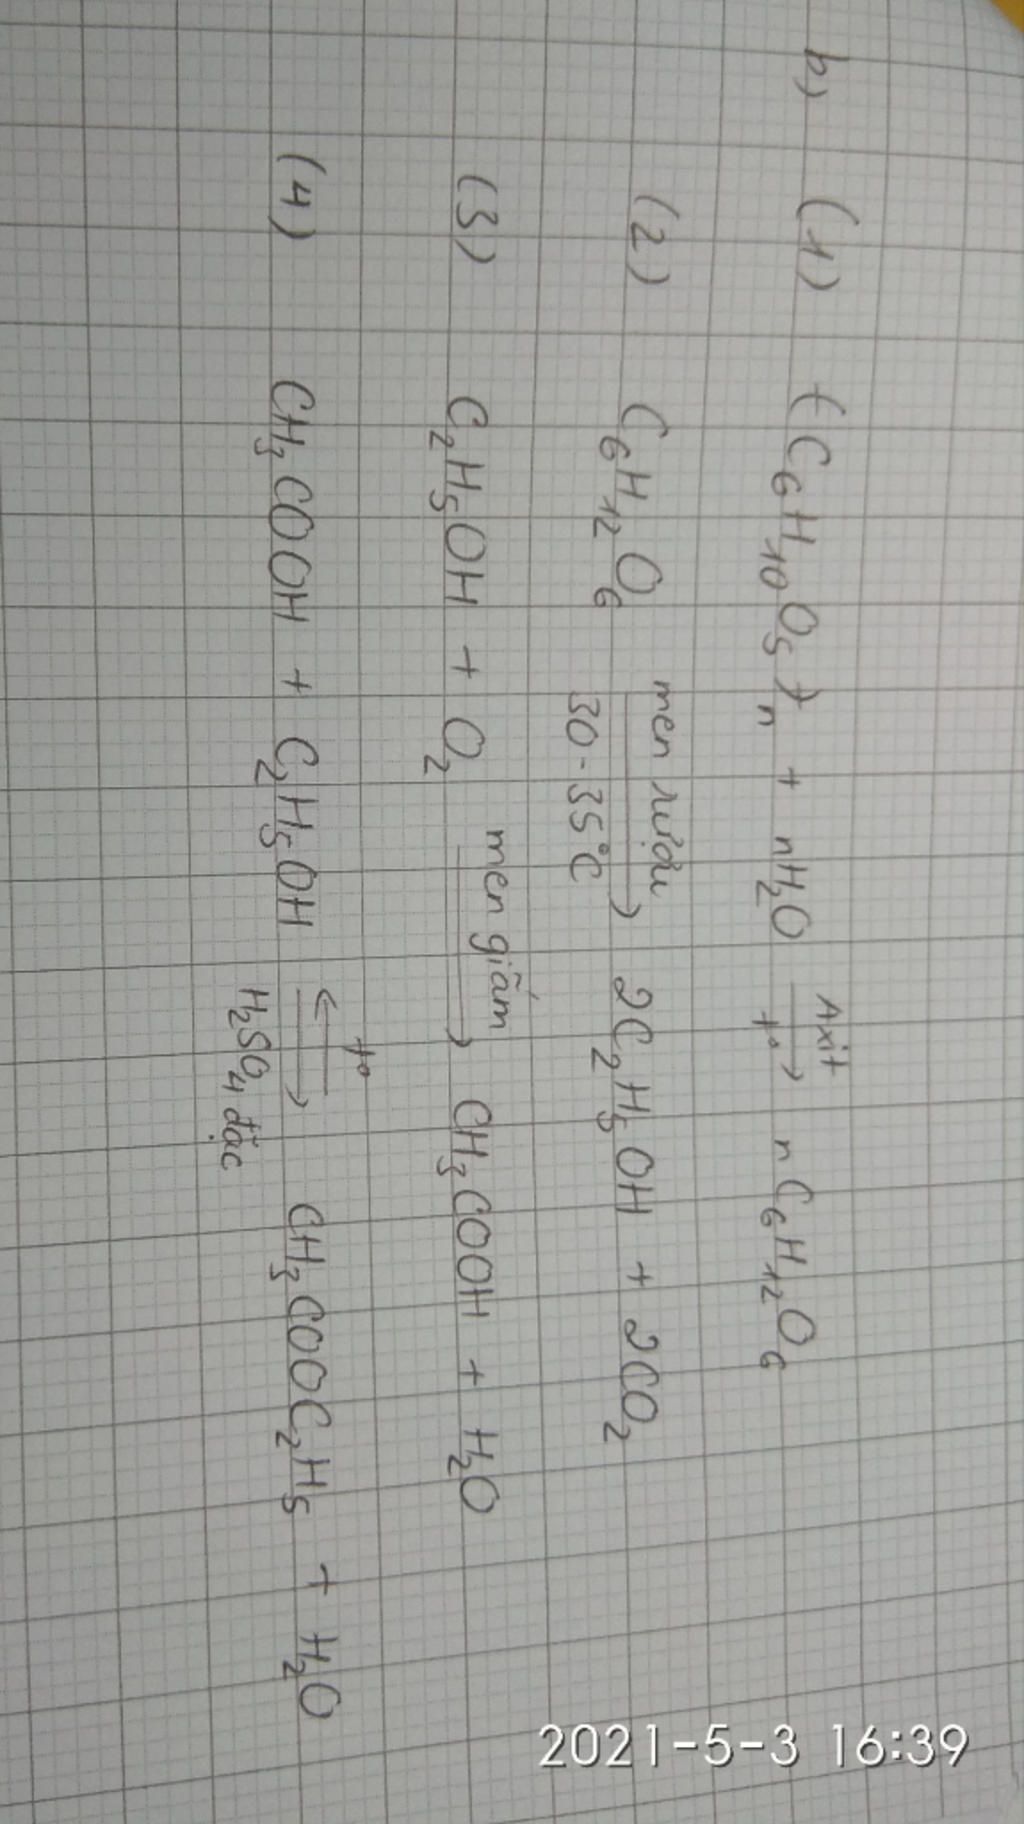 b) (1) (C6H10O5)n + nH2O Axit t° → nC6H12O6
(2) C6H12O6 men rượu 30-35°C → 2C2H5OH + 2CO2
(3) C2H5OH + O2 men giấm → CH3COOH + H2O
(4) CH3COOH + C2H5OH t° ⇌ H2SO4 đặc CH3COOC2H5 + H2O
2021-5-3 16:39